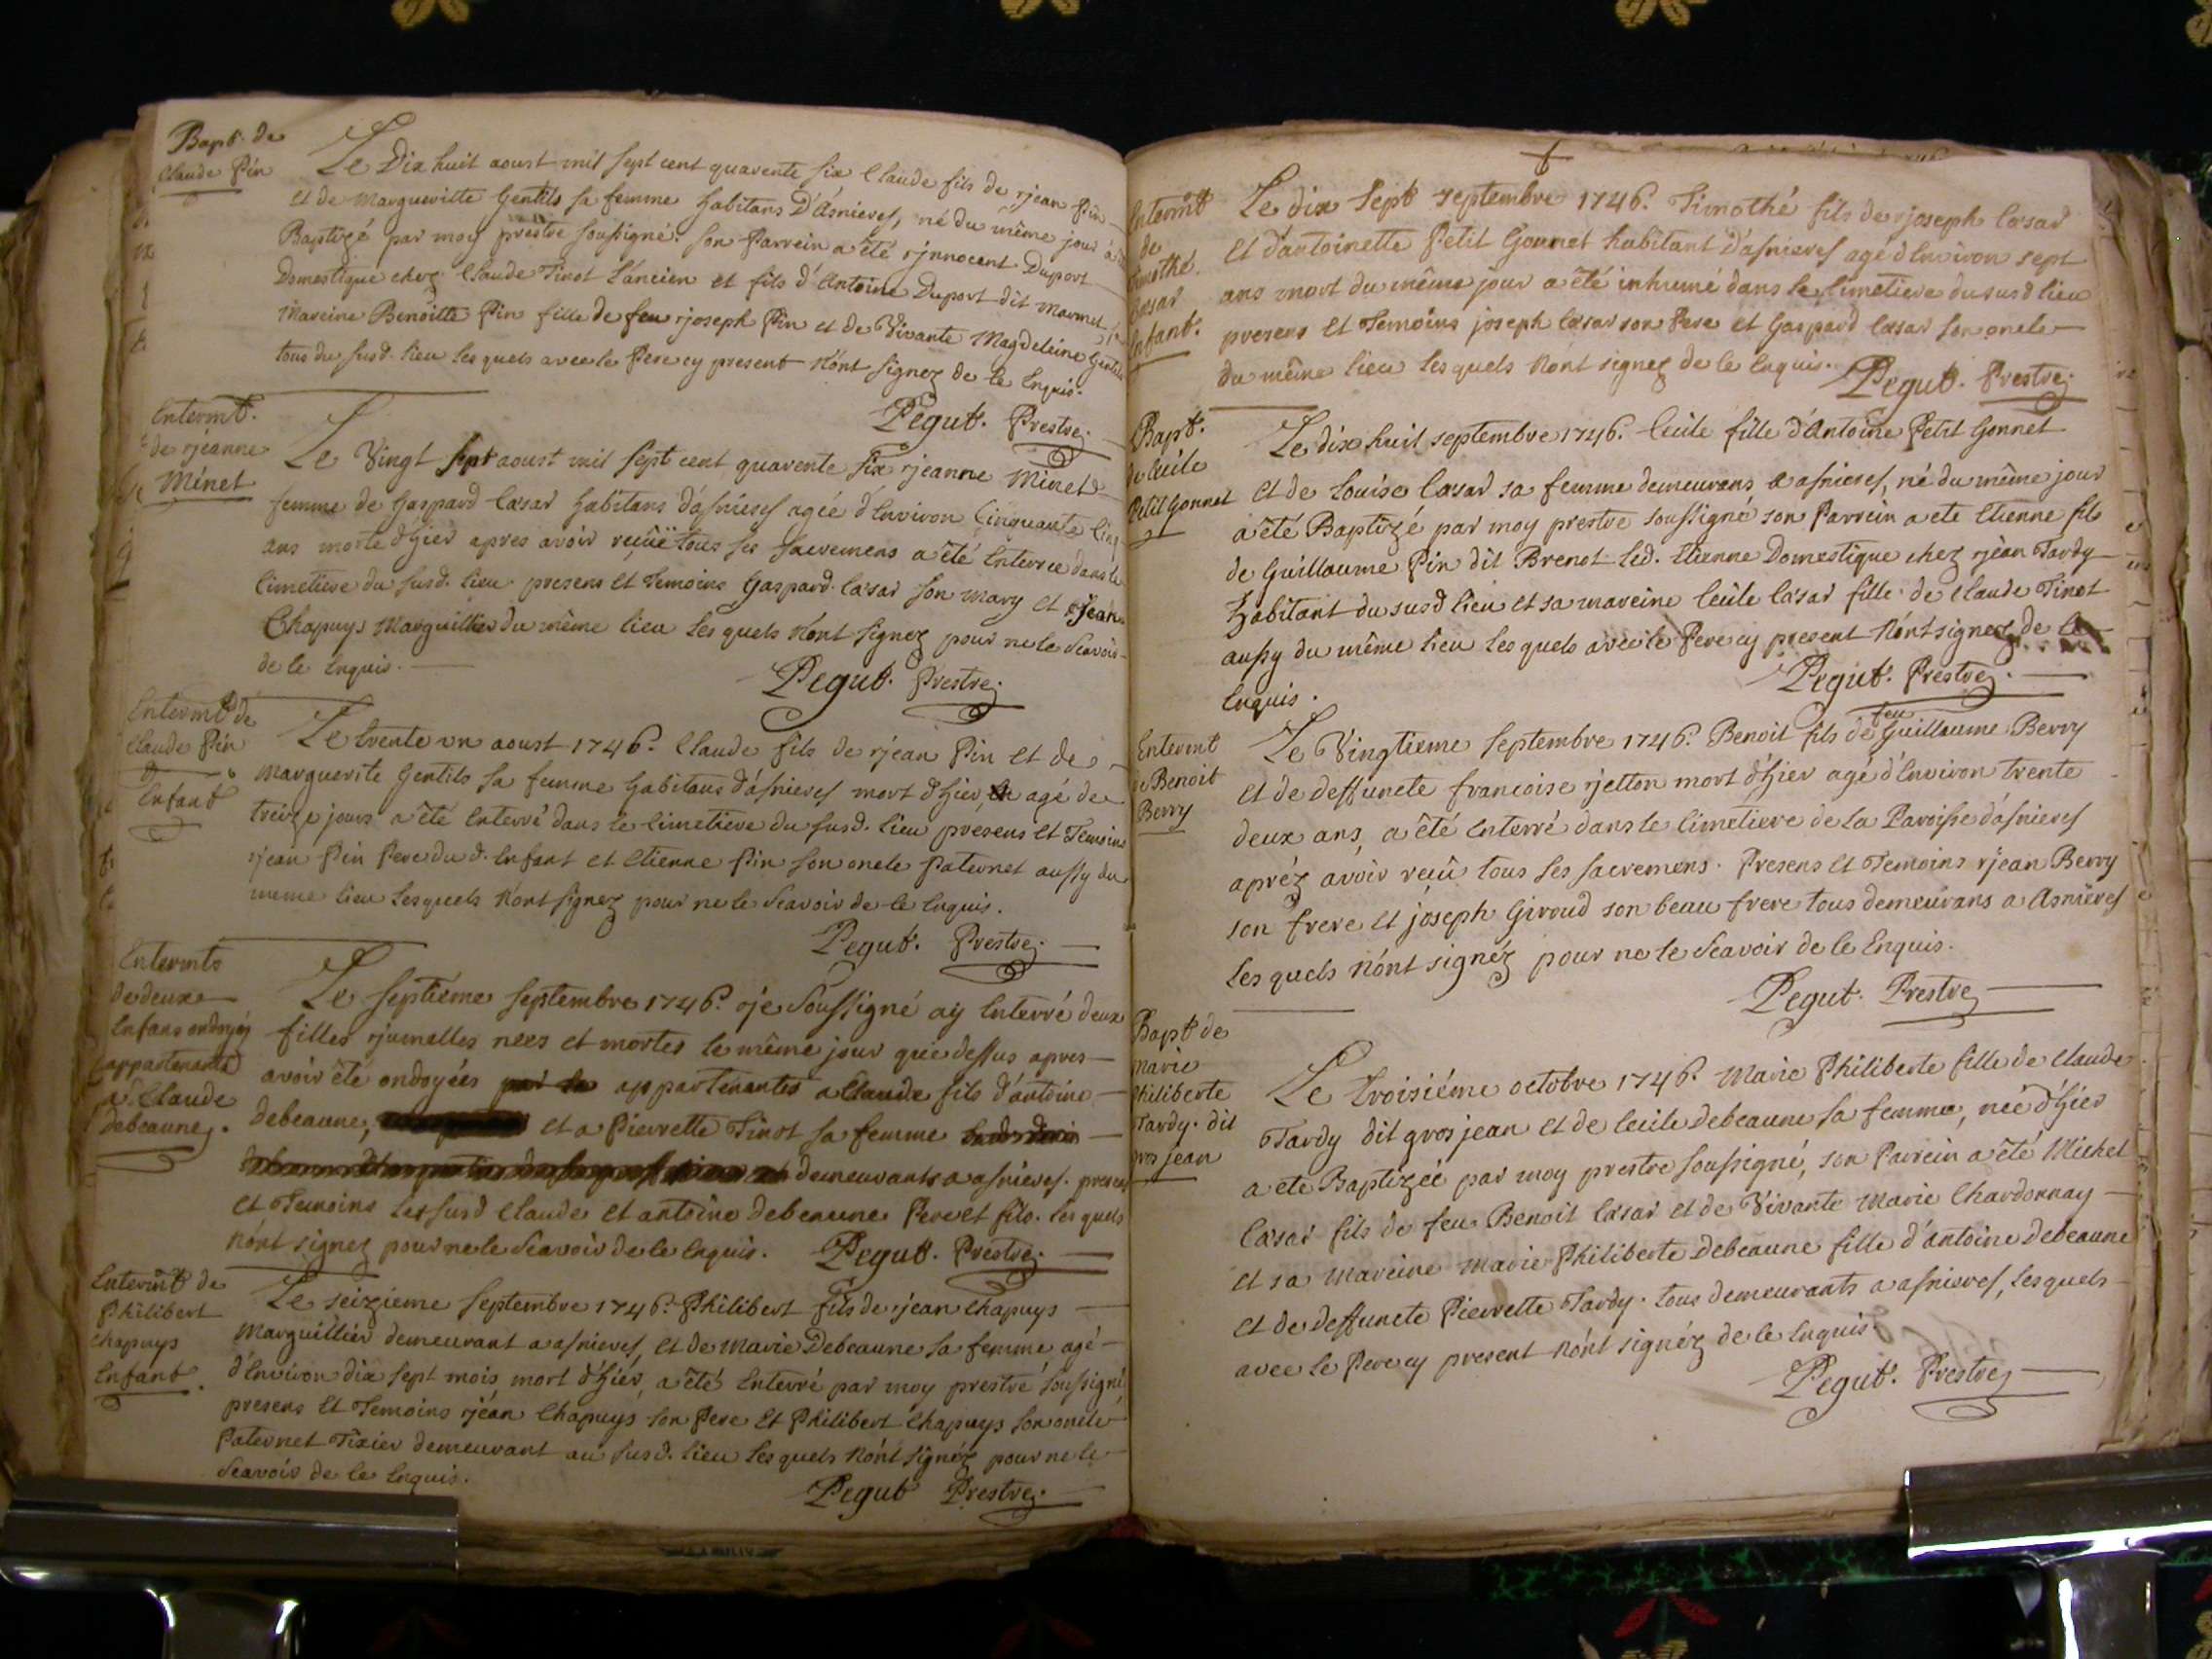 Bapt. de
Claude Pin
Le Dix huit aoust mil sept cent quarente six Claude fils de rjean Pin
et de Margueritte Gentils sa femme habitans D'Asnieres, né du même jour a été
Baptizé par moy prestre soussigné. son Parrein a été rjnnocent Duport
Domestique chez Claude Tinot L'áncien et fils d'Antoine Duport dit Marmet
Mareine Benoitte Pin fille de feu rjoseph Pin et de Vivante Magdeleine Gentils
tous du susd. lieu les quels avec le Pere cy present N'ónt signez de le Enquis.
Pegut. Prestre.
Enterrmt.
de rjeanne
Minet
Le Vingt sept aoust mil sept cent quarente six rjeanne Minet
femme de Gaspard Cæsar habitans d'ásnieres agée d'Environ Cinquante Cinq
ans morte d'hier apres avoir reçüe tous ses sacremens a été Enterrée dans le
Cimetiere du susd. lieu. presens et Temoins Gaspard Cæsar son mary et Jean
Chapuys Marguillier du même lieu les quels N'ont signez pour ne le Scavoir
de le Enquis.
Pegut. Prestre.
Enterrmt de
Claude Pin
Enfant
Le trente un aoust 1746. Claude fils de rjean Pin et de
Marguerite Gentils sa femme habitans d'ásnieres mort d'hier, agé de
treize jours a été Enterré dans le Cimetiere du susd. lieu presens et Temoins
rjean Pin Pere du d. Enfant et Etienne Pin son oncle Paternel aussy du
meme lieu Lesquels N'ónt signez pour ne le Scavoir de le Enquis.
Pegut. Prestre.
Enterrmts
de deux
Enfans ondoyés
appartenants
a Claude
debeaune.
Le septieme septembre 1746. rje Soussigné ay Enterré deux
filles rjumelles nées et mortes le même jour que dessus apres
avoir été ondoyées par la appartenantes a Claude fils d'ántoine
debeaune, et a Pierrette Tinot sa femme
demeurants a asnieres. presens
et Temoins les susd Claude et antoine debeaune Pere et fils. les quels
N'ónt signez pour ne le Scavoir de le Enquis. Pegut. Prestre.
Enterrmt de
Philibert
Chapuys
Enfant.
Le seizieme septembre 1746. Philibert fils de rjean Chapuys
Marguillier demeurant a asnieres, et de Marie Debeaune sa femme agé
d'Environ dix sept mois mort d'hier, a été Enterré par moy prestre soussigné
presens et Temoins rjean Chapuys son Pere et Philibert Chapuys son oncle
Paternel Tixier demeurant au susd. lieu les quels N'ónt signéz pour ne le
Scavoir de le Enquis.
Pegut Prestre.
Enterrmt
de
Timothé
Cæsar
Enfant.
Le dix Sept septembre 1746. Timothé fils de rjoseph Cæsar
et d'antoinette Petit Gonnet habitant d'ásnieres agé d'Environ sept
ans mort du même jour a été inhumé dans le Cimetiere du susd lieu
presens et Temoins joseph Cæsar son Pere et Gaspard Cæsar son oncle
du même lieu les quels N'ont signez de le Enquis.
Pegut. Prestre.
Bapt.
de Cecile
Petit Gonnet
Le dix huit septembre 1746. Cecile fille d'Antoine Petit Gonnet
et de Louise Cæsar sa femme demeurans a asnieres, né du même jour
a été Baptizé par moy prestre soussigné son Parrein a ete Etienne fils
de Guillaume Pin dit Brenot led. Etienne Domestique chez rjean Tardy
habitant du susd lieu et sa mareine Cecile Cæsar fille de Claude Tinot
aussy du même lieu les quels avec le Pere cy present N'ónt signez de le
Enquis.
Pegut. Prestre.
Enterrmt
de Benoit
Berry
Le Vingtieme septembre 1746. Benoit fils de feu Guillaume Berry
et de deffuncte francoise rjetton mort d'hier agé d'Environ trente
deux ans, a été Enterré dans le Cimetiere de la Paroisse d'ásnieres
apréz avoir reçû tous ses sacremens. Presens et Temoins rjean Berry
son frere et joseph Giroud son beau frere tous demeurans a Asnieres
Les quels N'ónt signéz pour ne le Scavoir de le Enquis.
Pegut. Prestre
Bapt de
Marie
Philiberte
Tardy. dit
gros jean
Le troisiéme octobre 1746. Marie Philiberte fille de Claude
Tardy dit gros jean et de Cecile debeaune sa femme, née d'hier
a ete Baptizée par moy prestre soussigné, son Parrein a été Michel
Cæsar fils de feu Benoit Cæsar et de Vivante Marie Chardonnay
et sa Mareine Marie Philiberte Debeaune fille d'ántoine Debeaune
et de Deffuncte Pierrette Tardy. tous demeurants a asnieres, Lesquels
avec le Pere cy present N'ónt signéz de le Enquis.
Pegut. Prestre